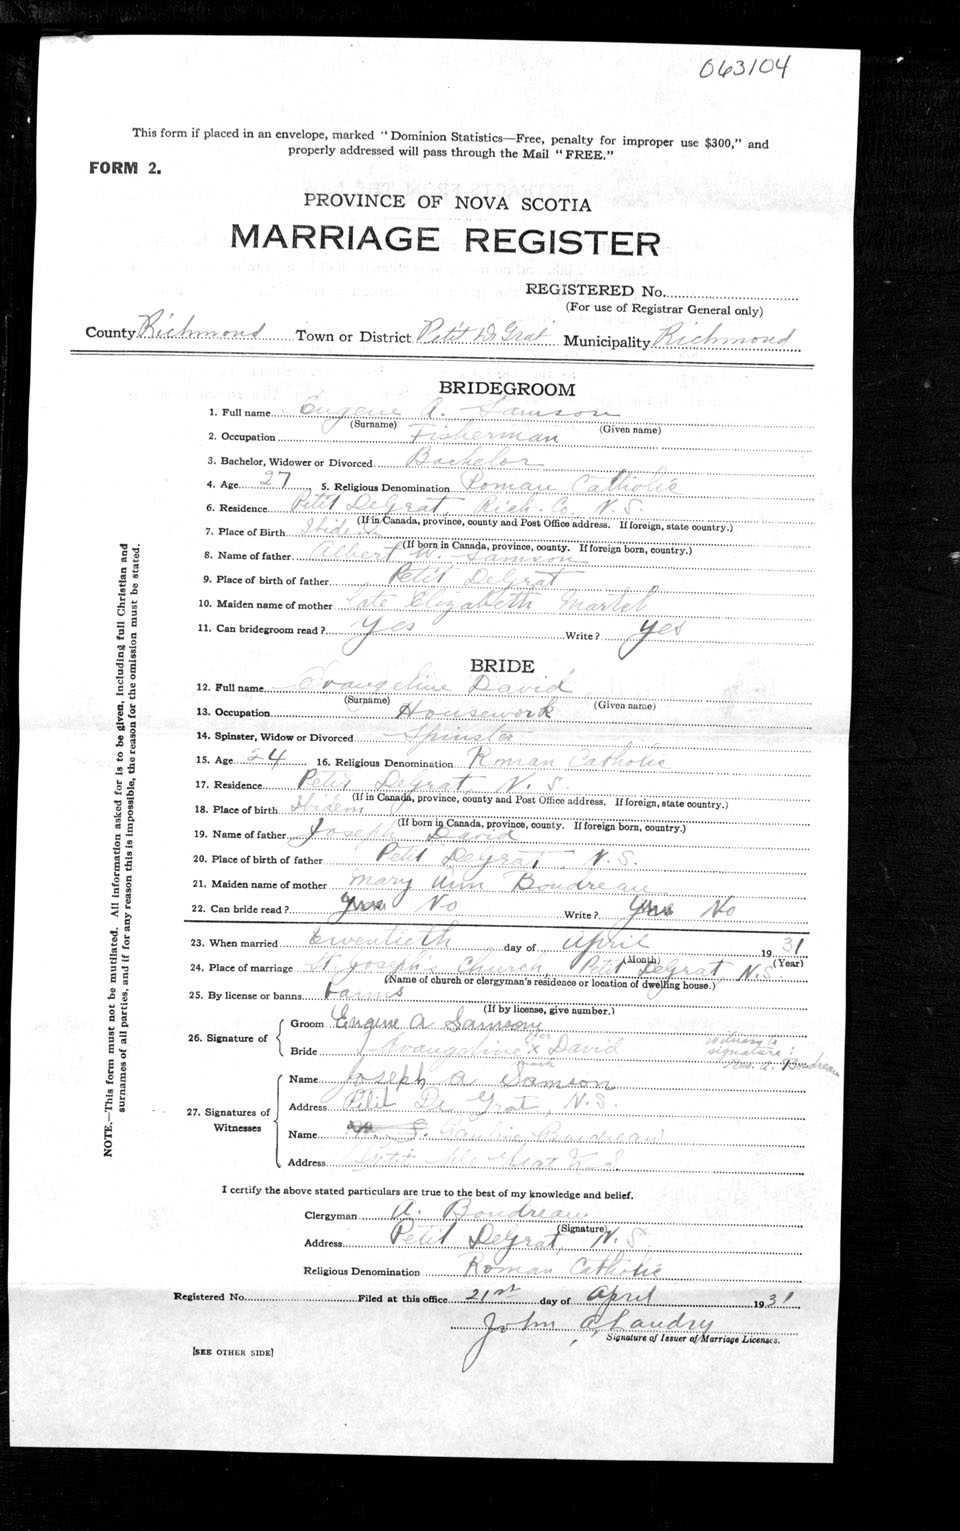 063104
This form if placed in an envelope, marked "Dominion Statistics—Free, penalty for improper use $300," and
properly addressed will pass through the Mail "FREE."
FORM 2.
PROVINCE OF NOVA SCOTIA
MARRIAGE REGISTER
REGISTERED No.
(For use of Registrar General only)
County Richmond Town or District Petit De Grat Municipality Richmond
BRIDEGROOM
1. Full name Eugene A. Samson
(Surname) (Given name)
2. Occupation Fisherman
3. Bachelor, Widower or Divorced Bachelor
4. Age 27 5. Religious Denomination Roman Catholic
6. Residence Petit DeGrat, Rich. Co., N. S.
(If in Canada, province, county and Post Office address. If foreign, state country.)
7. Place of Birth Ibidem
(If born in Canada, province, county. If foreign born, country.)
8. Name of father Albert W. Samson
9. Place of birth of father Petit DeGrat
10. Maiden name of mother late Elizabeth Martel
11. Can bridegroom read? Yes Write? Yes
BRIDE
12. Full name Evangeline David
(Surname) (Given name)
13. Occupation Housework
14. Spinster, Widow or Divorced Spinster
15. Age 24 16. Religious Denomination Roman Catholic
17. Residence Petit DeGrat, N. S.
(If in Canada, province, county and Post Office address. If foreign, state country.)
18. Place of birth Ibidem
(If born in Canada, province, county. If foreign born, country.)
19. Name of father Joseph David
20. Place of birth of father Petit DeGrat, N. S.
21. Maiden name of mother Mary Ann Boudreau
22. Can bride read? Yes No Write? Yes No
23. When married Twentieth day of April 1931
(Month) (Year)
24. Place of marriage St. Joseph's Church, Petit DeGrat N. S.
(Name of church or clergyman's residence or location of dwelling house.)
25. By license or banns Banns
(If by license, give number.)
26. Signature of
Groom Eugene A Samson
Bride Evangeline her x mark David
Witness to signature: A. Boudreau
27. Signatures of Witnesses
Name Joseph A Samson
Address Petit De Grat, N. S.
Name Pauline Boudreau
Address Petit de Grat N.S.
I certify the above stated particulars are true to the best of my knowledge and belief.
Clergyman A. Boudreau
(Signature)
Address Petit DeGrat, N. S.
Religious Denomination Roman Catholic
Registered No. Filed at this office 21st day of April 1931
John A Landry
Signature of Issuer of Marriage Licenses.
[SEE OTHER SIDE]
NOTE.—This form must not be mutilated. All information asked for is to be given, including full Christian and
surnames of all parties, and if for any reason this is impossible, the reason for the omission must be stated.